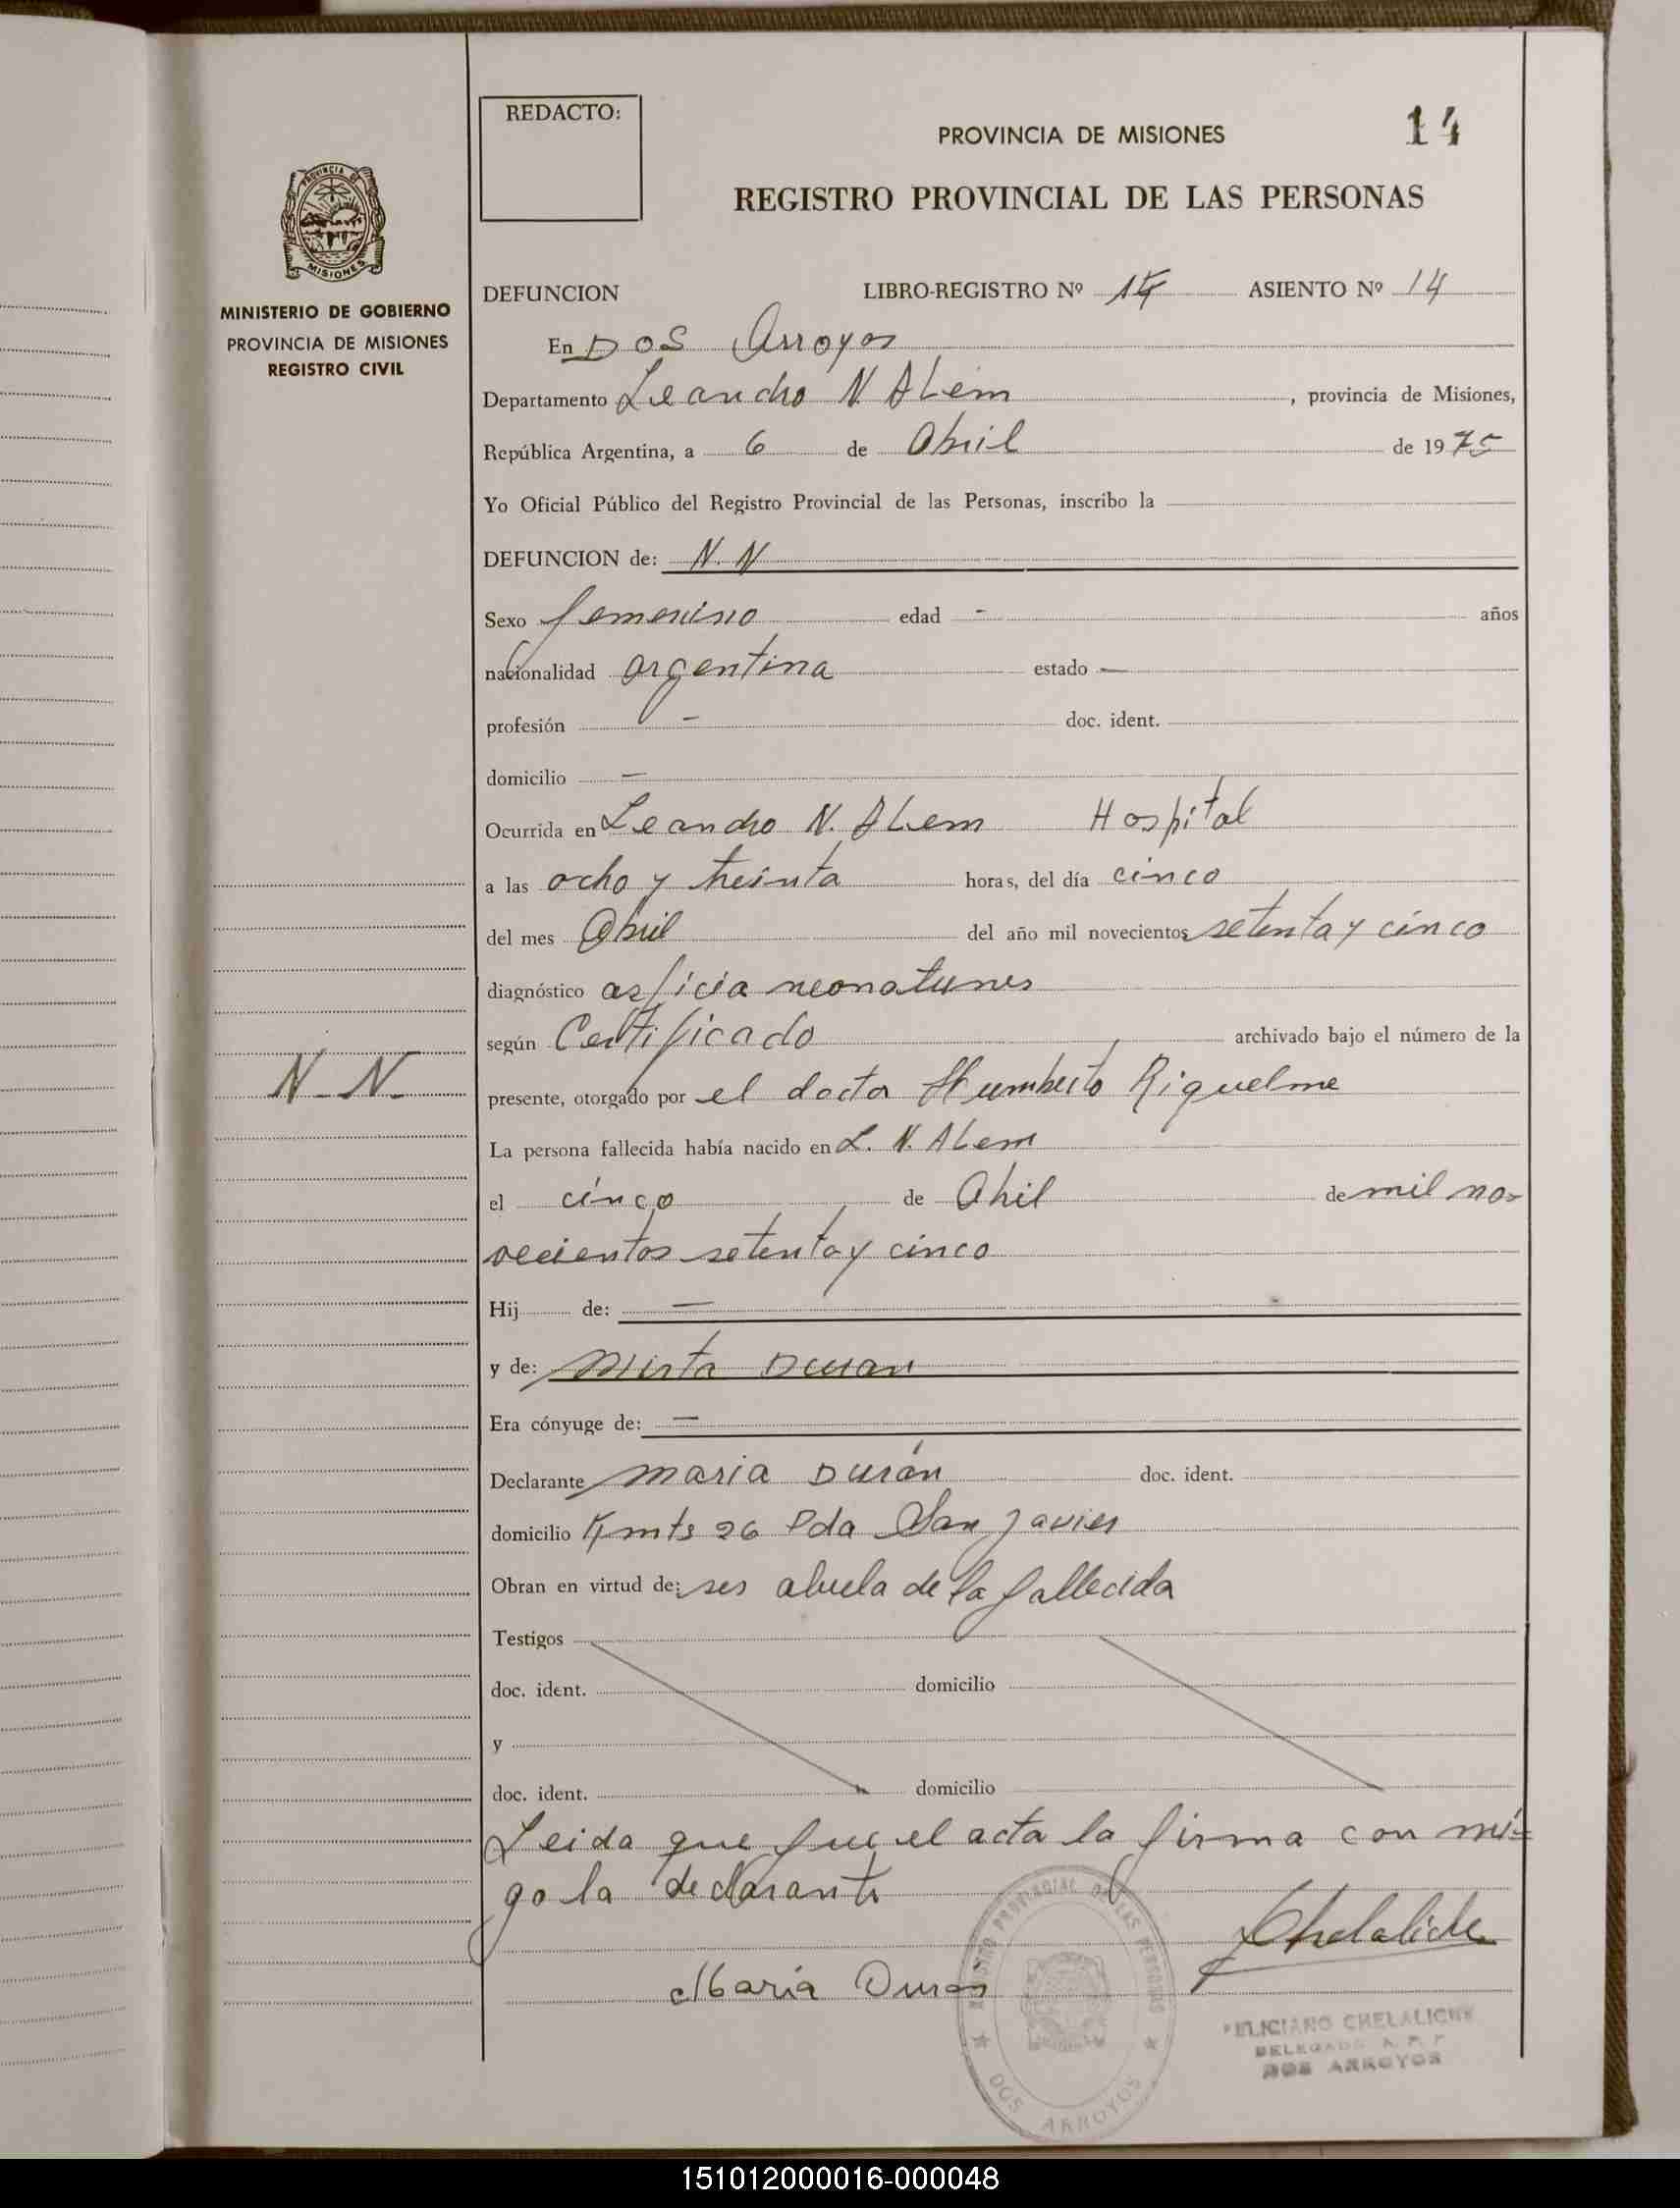 REDACTO:
PROVINCIA DE MISIONES
14
REGISTRO PROVINCIAL DE LAS PERSONAS
PROVINCIA DE
MISIONES
MINISTERIO DE GOBIERNO
PROVINCIA DE MISIONES
REGISTRO CIVIL
DEFUNCION LIBRO-REGISTRO Nº ASIENTO Nº 14
En DOS Arroyos
Departamento Leandro N. ALem, provincia de Misiones,
República Argentina, a 6 de Abril de 1975
Yo Oficial Público del Registro Provincial de las Personas, inscribo la
DEFUNCION de: N. N
Sexo femenino edad - años
nacionalidad argentina estado —
profesión - doc. ident.
domicilio —
Ocurrida en Leandro N. ALem Hospital
a las ocho y treinta horas, del día cinco
del mes Abril del año mil novecientos setenta y cinco
diagnóstico asficia neonatunes
según Certificado archivado bajo el número de la
N-N-
presente, otorgado por el doctor Humberto Riquelme
La persona fallecida había nacido en L. N. ALem
el cinco de Abril de mil no-
vecientos setenta y cinco
Hij de: —
y de: Mirta Duran
Era cónyuge de: —
Declarante Maria Durán doc. ident.
domicilio Kmts 26 Pda San Javier
Obran en virtud de: ser abuela de la fallecida
Testigos
doc. ident. domicilio
y
doc. ident. domicilio
Leida que fue el acta la firma con mi-
go la declarante
Chelaliche
Maria Duran
REGISTRO PROVINCIAL DE LAS PERSONAS
DOS ARROYOS
FELICIANO CHELALICHE
DELEGADO R. P. P
DOS ARROYOS
151012000016-000048